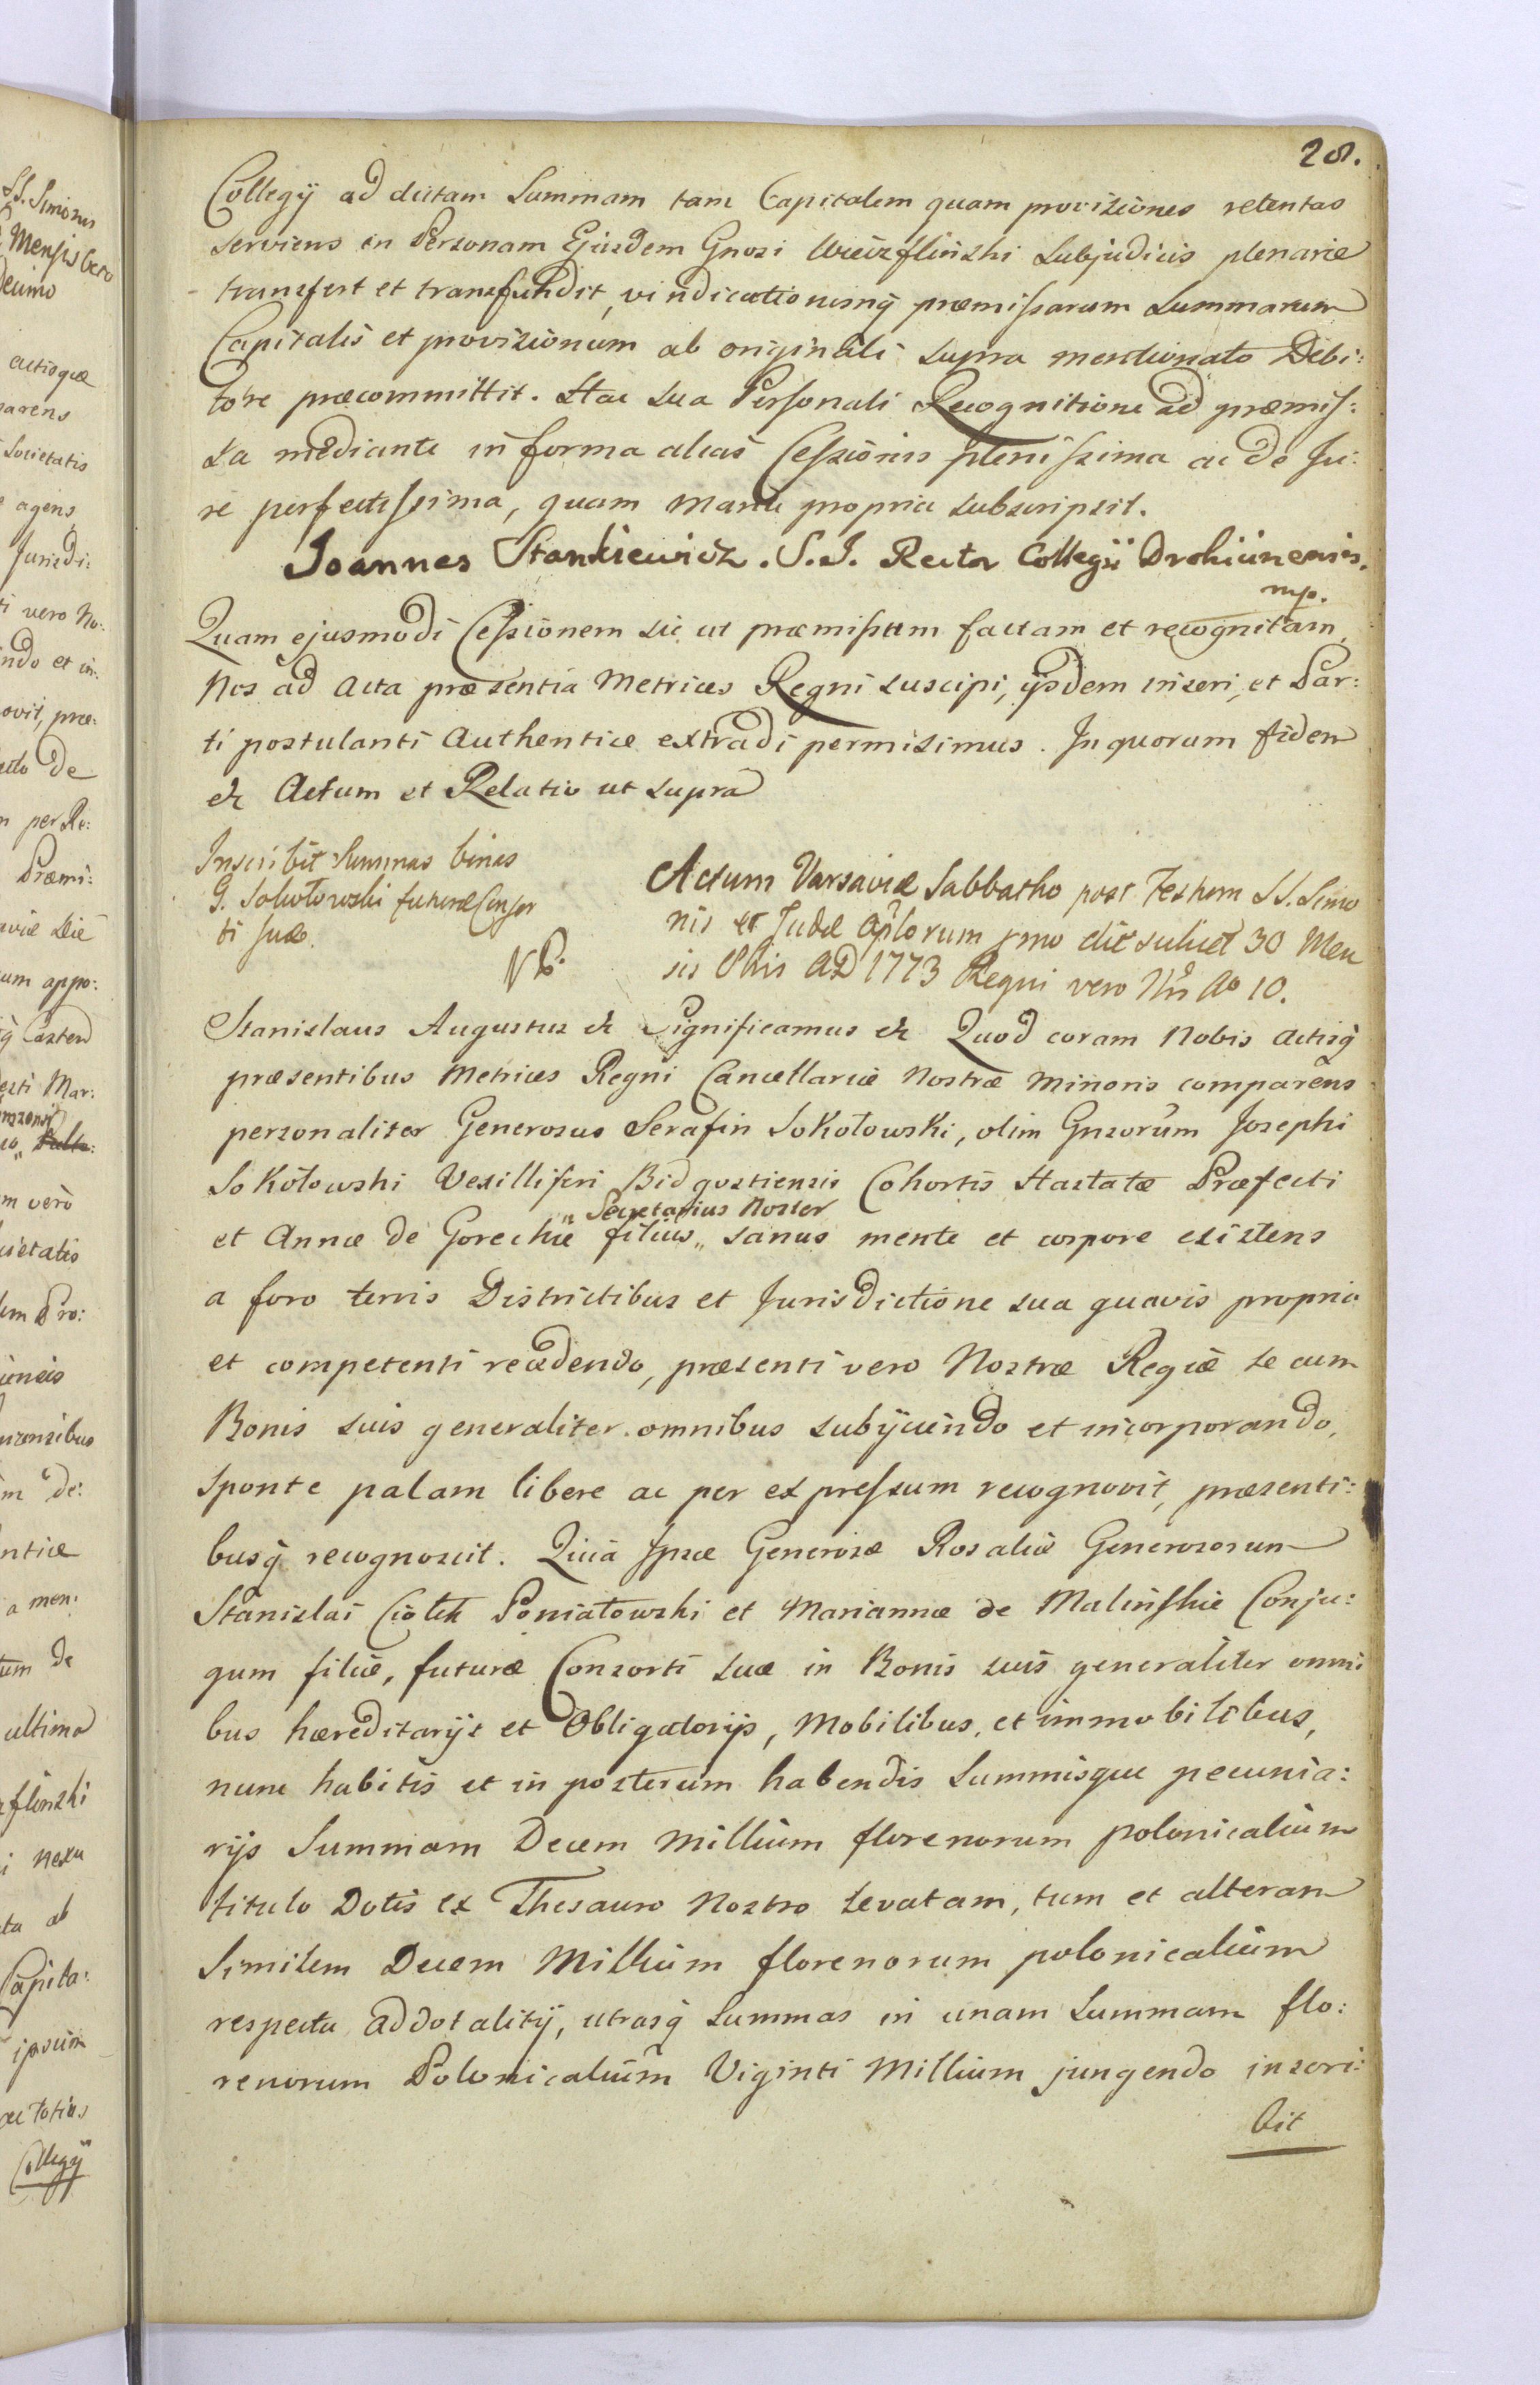 28.
Collegÿ ad dictam Summam tam Capitalem quam provisiones retentas
serviens in Personam Ejusdem Gnosi Wieizflinski Subjudicis plenarie
transfert et transfundit, vindicationemq̃ præmissarum Summarum
Capitalis et provisionum ab originali supra mentionato Debi:
tore præcommittit. Hac sua Personali Recognitione ad præmis:
sa mediante in forma alias Cessionis plenissima ac de Ju:
re perfectissima, quam manu propria subscripsit.
Joannes Stankiewicz. S.J. Rector Collegii Drohiinensis.
mp.
Quam ejusmodi Cessionem sic ut præmissum factam et recognitam,
Nos ad Acta præsentia Metrices Regni suscipi, ijsdem inseri, et Par:
ti postulanti Authentice extradi permisimus. In quorum fidem
&c Actum et Relatio ut supra
Inscribit Summas binas
G. Sokołowski futuræ Consor
ti suæ.
NB.
Actum Varsaviæ Sabbatho post Festum SS. Simo
nis et Judæ Aplorum pmo die scilicet 30 Men
sis 8bris AD 1773 Regni vero Nri Ao 10.
Stanislaus Augustus &c Significamus &c Quod coram Nobis Actisq̃
præsentibus Metrices Regni Cancellariæ Nostræ Minoris comparens
personaliter Generosus Serafin Sokołowski, olim Gnsorum Josephi
Sokołowski Vexilliferi Bidgostiensis Cohortis Hastatæ Præfecti
„ Secretarius Noster
et Annæ de Goreckie filius „ sanus mente et corpore existens
a foro terris Districtibus et Jurisdictione sua quavis propria
et competenti recedendo, præsenti vero Nostræ Regiæ se cum
Bonis suis generaliter omnibus subijciendo et incorporando,
sponte palam libere ac per expressum recognovit, præsenti:
busq̃ recognoscit. Quia Ipse Generosæ Rosaliæ Generosorum
Stanislai Ciołek Poniatowski et Mariannæ de Malinskie Conju:
gum filiæ, futuræ Consorti suæ in Bonis suis generaliter omni
bus hæreditarijs et Obligatorijs, Mobilibus, et immobilibus,
nunc habitis et in posterum habendis Summisque pecunia:
rijs Summam Decem Millium florenorum polonicalium
titulo Dotis ex Thesauro Nostro levatam, tum et alteram
Similem Decem Millium florenorum polonicalium
respectu addotalitij, utrasq̃ Summas in unam Summam flo:
renorum Polonicalium Viginti Millium jungendo inscri:
bit